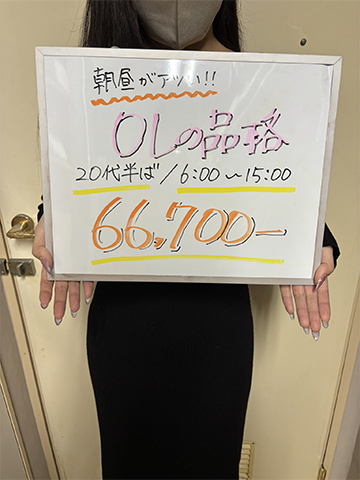 朝昼がアツい!!
OLの品格
20代半ば/6:00~15:00
66,700-